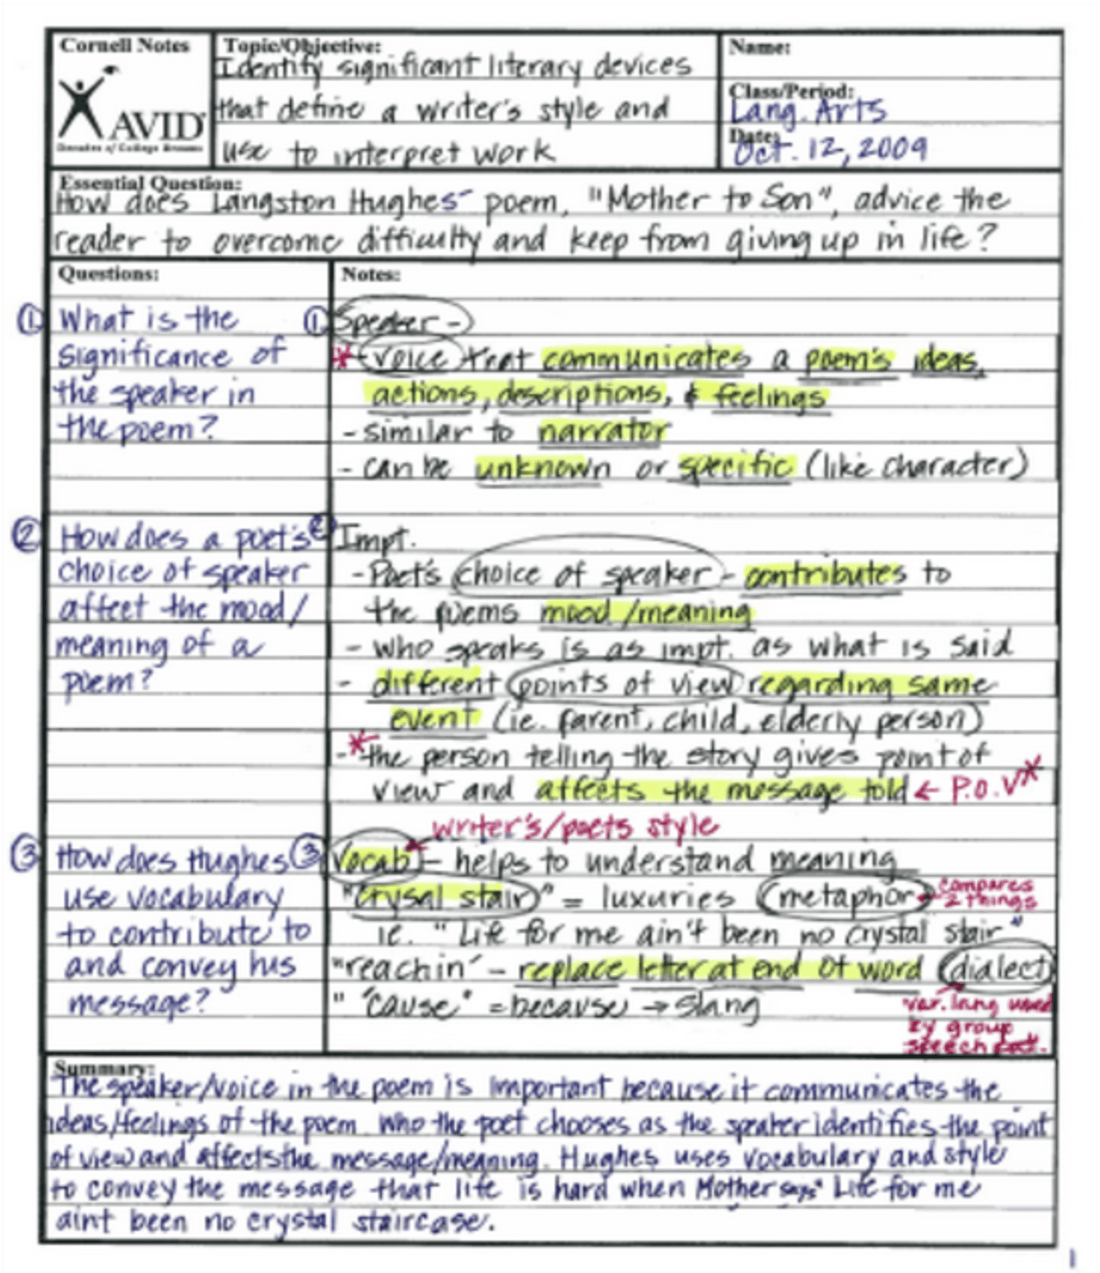 Cornell Notes
AVID
Decades of College Dreams
Topic/Objective:
Identify significant literary devices
that define a writer's style and
use to interpret work
Name:
Class/Period:
Lang. Arts
Date:
Oct. 12, 2009
Essential Question:
How does Langston Hughes' poem, "Mother to Son", advice the
reader to overcome difficulty and keep from giving up in life?
Questions:
① What is the
significance of
the speaker in
the poem?
② How does a poet's
choice of speaker
affect the mood/
meaning of a
poem?
③ How does Hughes
use vocabulary
to contribute to
and convey his
message?
Notes:
① Speaker -
* - voice that communicates a poem's ideas,
actions, descriptions, & feelings
- similar to narrator
- can be unknown or specific (like character)
② Impt.
- Poet's choice of speaker - contributes to
the poems mood/meaning
- who speaks is as impt. as what is said
- different points of view regarding same
event (ie. parent, child, elderly person)
- * the person telling the story gives point of
view and affects the message told ← P.O.V *
writer's/poets style
③ Vocab - helps to understand meaning
"crysal stair" = luxuries (metaphor) compares
2 things
ie. "Life for me ain't been no crystal stair"
"reachin' - replace letter at end of word (dialect)
" 'cause" = because → slang
var. lang used
by group
speech
Summary:
The speaker/voice in the poem is important because it communicates the
ideas/feelings of the poem. Who the poet chooses as the speaker identifies the point
of view and affects the message/meaning. Hughes uses vocabulary and style
to convey the message that life is hard when Mother says" Life for me
aint been no crystal staircase.
1